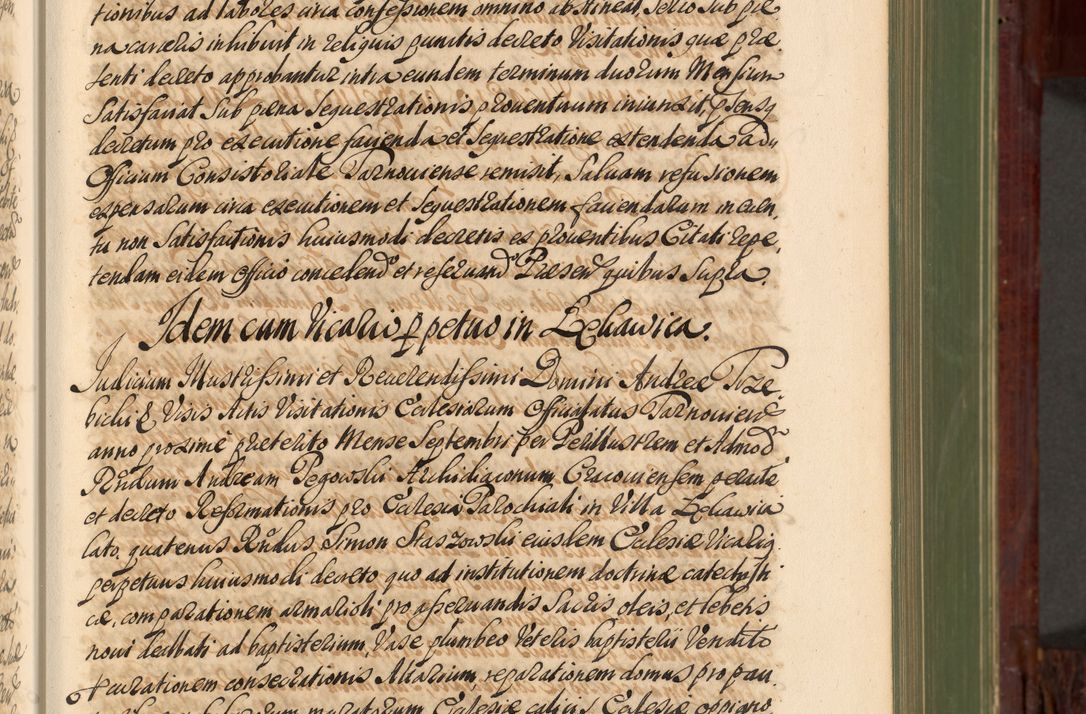 tionibus ad labores circa confessionem omnino abstineat, Serio sub pœ
na carceris inhibuit in reliquis punctis decreto Visitationis quæ præ
senti decreto approbantur intra eundem terminum duorum Mensium
Satisfaciat Sub pæna Sequestrationis prouentuum iniunxit,
decretum pro executione facienda et Sequestratione extendenda ad
Officium Consistoriale Tarnouiense remisit, Saluam refusionem
expensarum circa executionem et Sequestrationem faciendarum in euen
tu non Satisfactionis huiusmodi decretis ex prouentibus Citati repe
tendam eidem Officio concedend et reseruand Presen quibus Supra.
Idem cum Vicario perpetuo in Lekawica.
Judicium Illustrissimi et Reuerendissimi Domini Andreæ Trze
bicki & Visis Actis Visitationis Ecclesiarum Officialatus Tarnouien
anno proximè præterito Mense Septembri per Perillustrem et Admod
Rndum Andream Pegowski Archidiaconum Cracouiensem peracte
et decreto Reformationis pro Ecclesia Parochiali in Villa Lekawica
lato, quatenus Rndus Simon Staszowski eiusdem Ecclesiæ Vicarius
perpetuus huiusmodi decreto quo ad institutionem doctrinæ catechisti
cæ, comparationem armarioli pro asseruandis Sacris oleis, et lebetis
noui dealbati ad baptisterium, Vase plumbeo Veteris baptisterii Vendito
procurationem consecrationis Altarium, reparationem domus pro pau
Ecclesiæ calicis Ecclesiæ